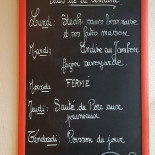 de la semaine
Lundi: Steak sauce béarnaise
et ses pâtes maison
Mardi: Endive au Jambon
façon savoyarde
Mercredi FERMÉ
Jeudi: Sauté de Porc aux
pruneaux
Vendredi: Poisson du jour